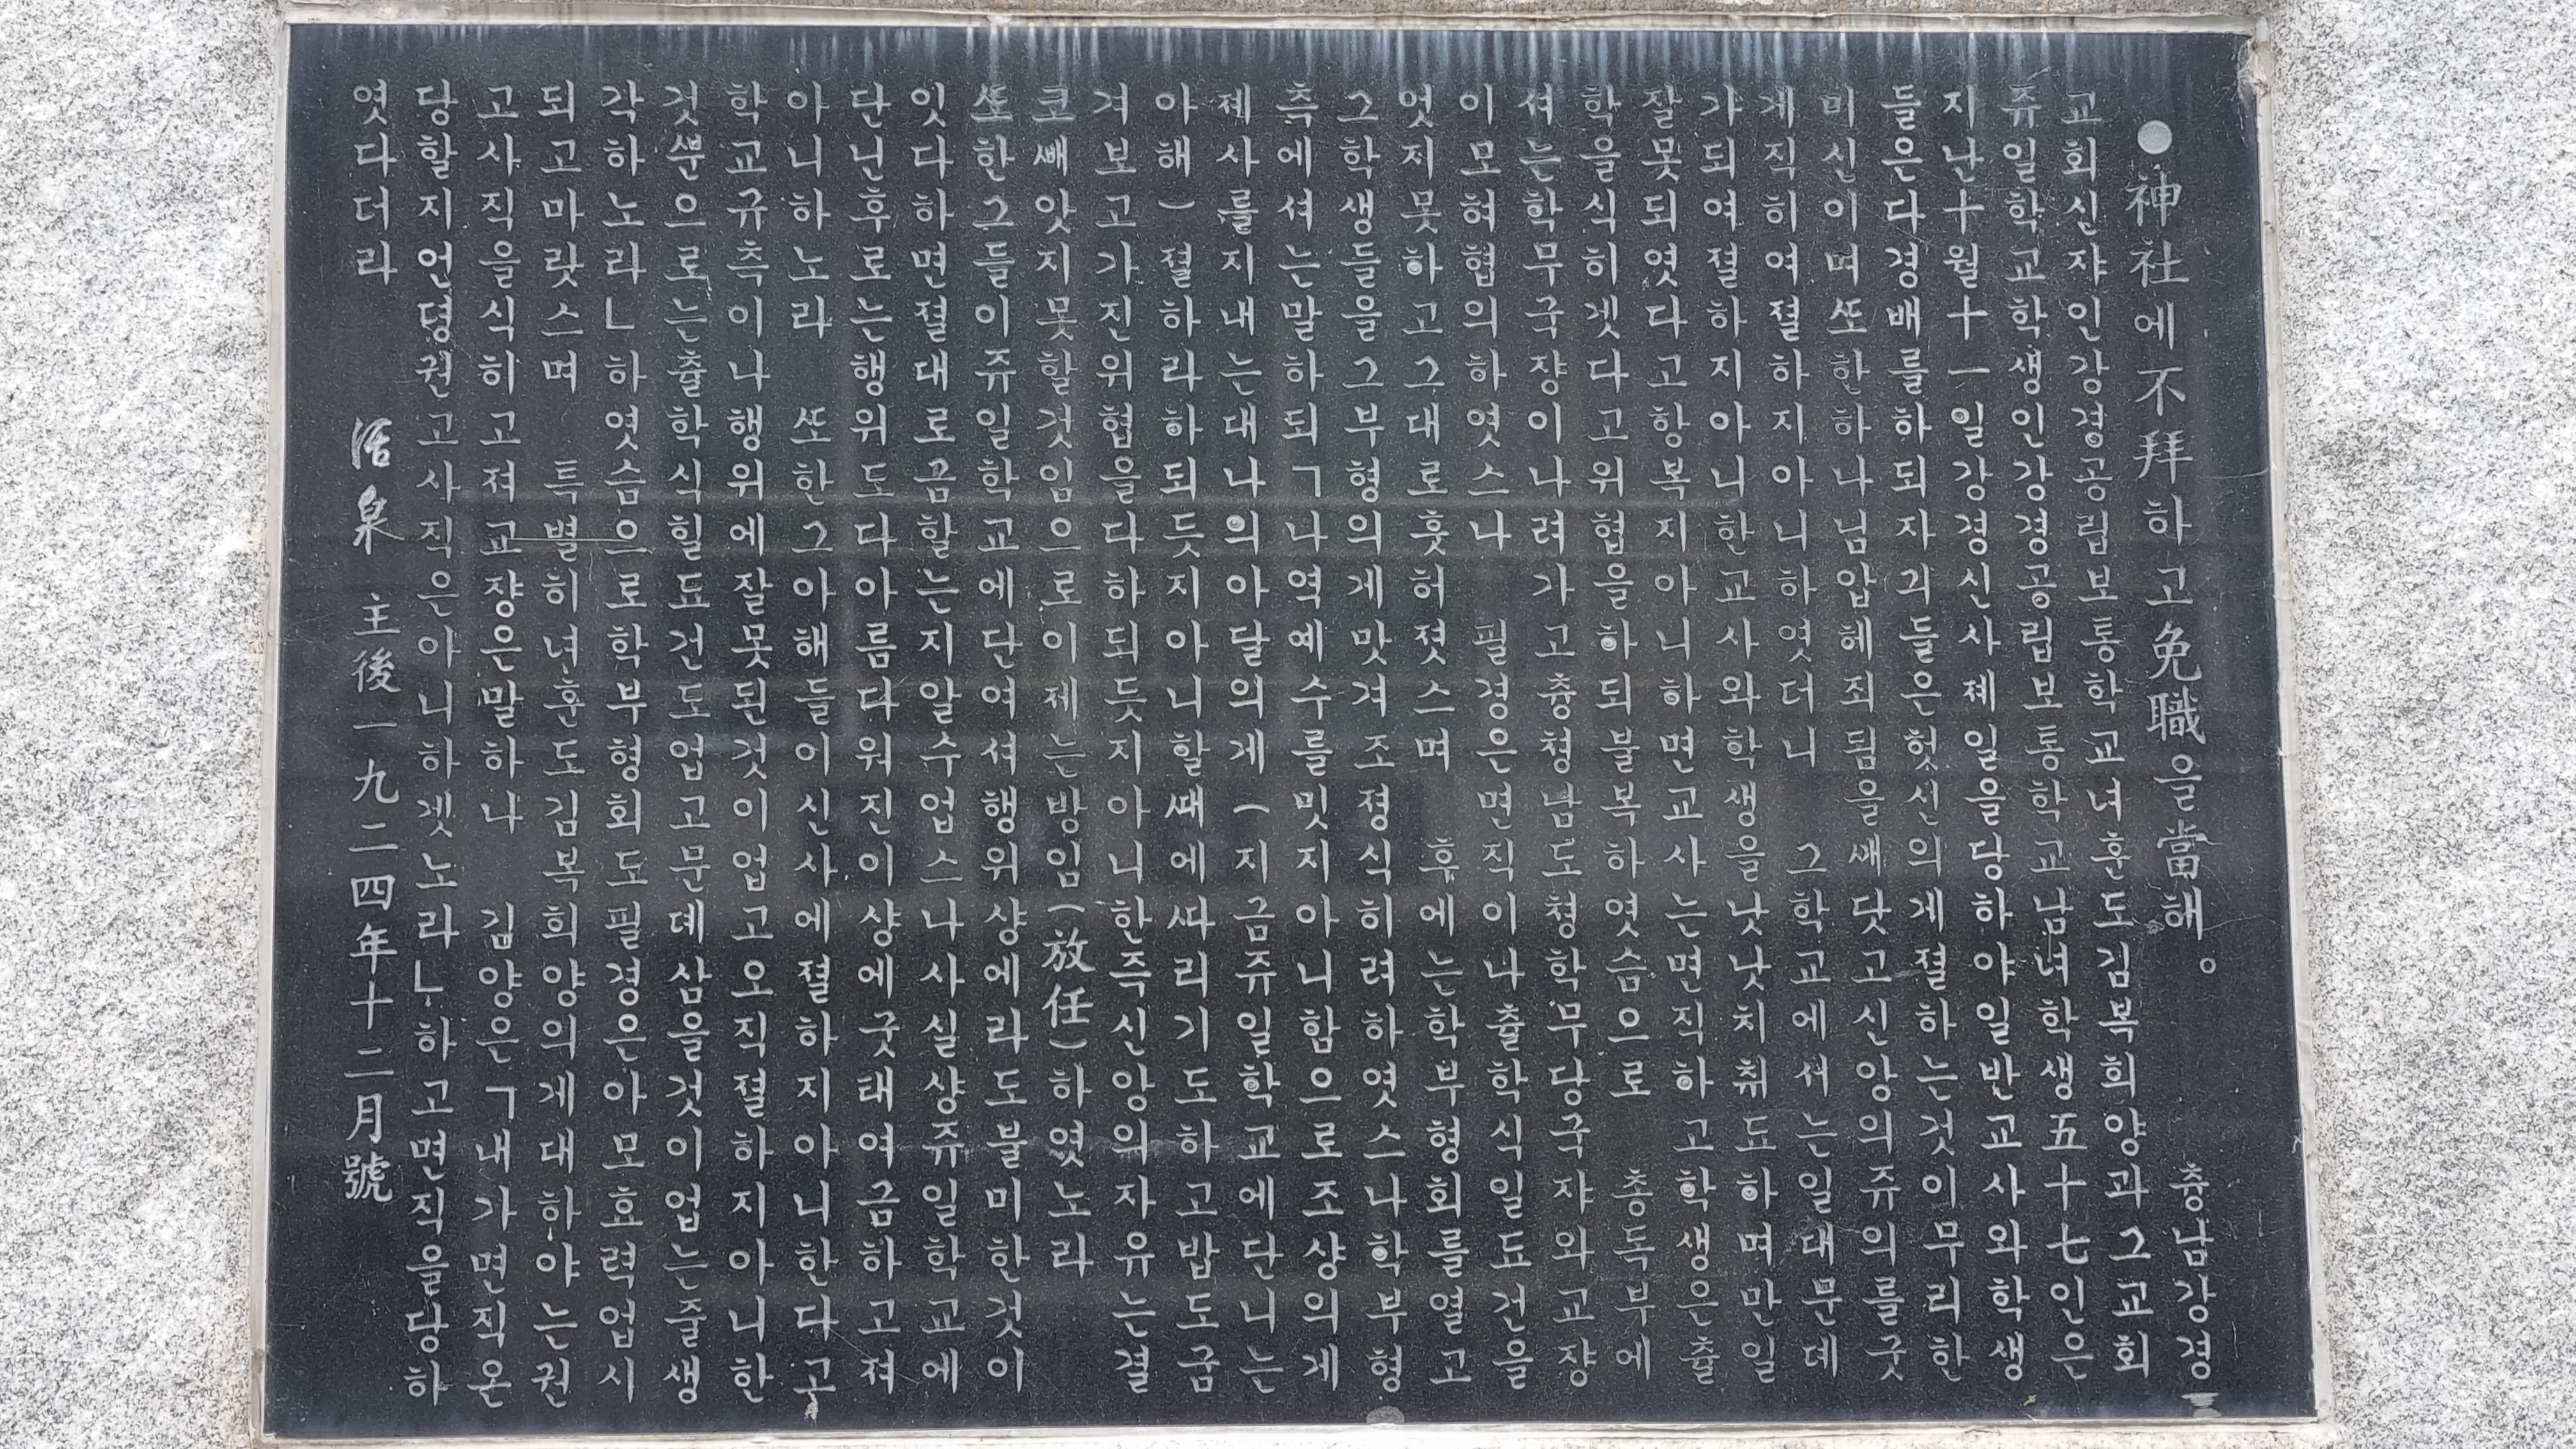 ●神社에不拜하고免職을當해。 충남강경
교회신쟈인강경공립보통학교녀훈도김복희양과그교회
쥬일학교학생인강경공립보통학교남녀학생五十七인은
지난十월十一일강경신사졔일을당하야일반교사와학생
들은다경배를하되자긔들은헛신의게졀하는것이무리한
미신이며ᄯᅩ한하나님압헤죄됨을ᄭᅢ닷고신앙의쥬의를굿
게직히여졀하지아니하엿더니 그학교에셔는일대문뎨
가되여졀하지아니한교사와학생을낫낫치취됴하며만일
잘못되엿다고항복지아니하면교사는면직하고학생은츌
학을식히겟다고위협을하되불복하엿슴으로 총독부에
셔는학무국쟝이나려가고츙청남도청학무당국쟈와교쟝
이모혀협의하엿스나 필경은면직이나츌학식일됴건을
엇지못하고그대로훗허졋스며 후에는학부형회를열고
그학생들을그부형의게맛겨조졍식히려하엿스나학부형
측에셔는말하되「나역예수를밋지아니함으로조샹의게
졔사를지내는대나의아달의게(지금쥬일학교에단니는
아해)졀하라하되듯지아니할ᄯᅢ에ᄯᅡ리기도하고밥도굼
겨보고가진위협을다하되듯지아니한즉신앙의자유는결
코ᄲᅢ앗지못할것임으로이제는방임(放任)하엿노라
ᄯᅩ한그들이쥬일학교에단여셔행위샹에라도불미한것이
잇다하면졀대로금할는지알수업스나사실샹쥬일학교에
단닌후로는행위도다아름다워진이샹에굿태여금하고져
아니하노라 ᄯᅩ한그아해들이신사에졀하지아니한다고
학교규측이나행위에잘못된것이업고오직졀하지아니한
것ᄲᅮᆫ으로는츌학식힐됴건도업고문뎨삼을것이업는줄생
각하노라」하엿슴으로학부형회도필경은아모효력업시
되고마랏스며 특별히녀훈도김복희양의게대하야는권
고사직을식히고져교쟝은말하나 김양은「내가면직은
당할지언뎡권고사직은아니하겟노라」하고면직을당하
엿다더라 活泉 主後一九二四年十二月號